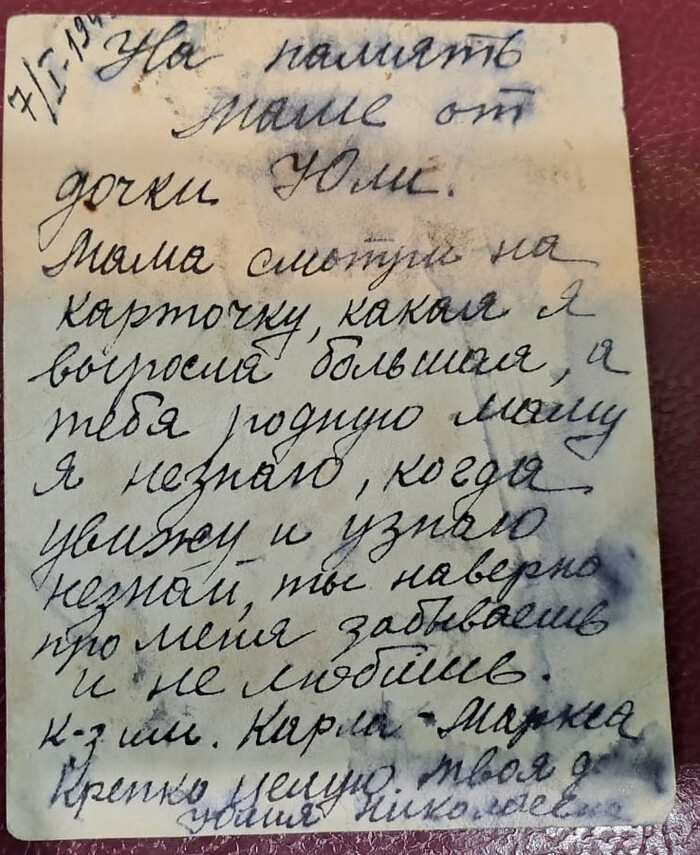 7/I-194
На память
маме от
дочки Юли.
Мама смотри на
карточку, какая я
выросла большая, а
тебя родную маму
я незнаю, когда
увижу и узнаю
незнаю, ты наверно
про меня забываешь
и не любишь.
к-з им. Карла-Маркса
Крепко целую твоя
Юлия Николаевна